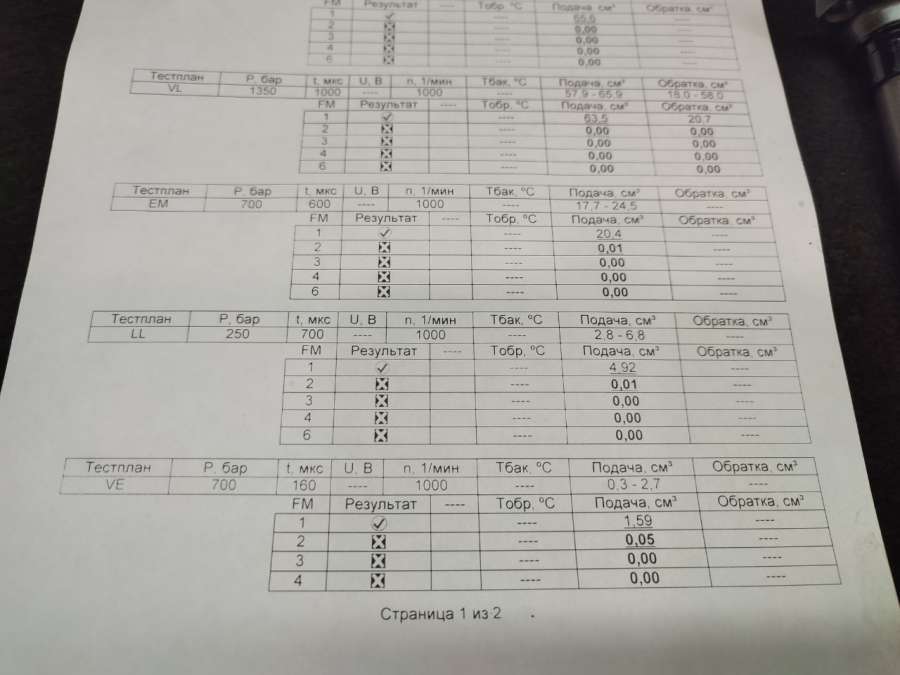 FM Результат ---- Тобр, ºС Подача, см³ Обратка, см³
1 ---- 65,6 ----
2 ---- 0,00 ----
3 ---- 0,00 ----
4 ---- 0,00 ----
6 ---- 0,00 ----
Тестплан P, бар t, мкс U, В n, 1/мин Тбак, ºС Подача, см³ Обратка, см³
VL 1350 1000 ---- 1000 ---- 57,9 - 65,9 18,0 - 58,0
FM Результат ---- Тобр, ºС Подача, см³ Обратка, см³
1 ---- 63,5 20,7
2 ---- 0,00 0,00
3 ---- 0,00 0,00
4 ---- 0,00 0,00
6 ---- 0,00 0,00
Тестплан P, бар t, мкс U, В n, 1/мин Тбак, ºС Подача, см³ Обратка, см³
EM 700 600 ---- 1000 ---- 17,7 - 24,5 ----
FM Результат ---- Тобр, ºС Подача, см³ Обратка, см³
1 ---- 20,4 ----
2 ---- 0,01 ----
3 ---- 0,00 ----
4 ---- 0,00 ----
6 ---- 0,00 ----
Тестплан P, бар t, мкс U, В n, 1/мин Тбак, ºС Подача, см³ Обратка, см³
LL 250 700 ---- 1000 ---- 2,8 - 6,8 ----
FM Результат ---- Тобр, ºС Подача, см³ Обратка, см³
1 ---- 4,92 ----
2 ---- 0,01 ----
3 ---- 0,00 ----
4 ---- 0,00 ----
6 ---- 0,00 ----
Тестплан P, бар t, мкс U, В n, 1/мин Тбак, ºС Подача, см³ Обратка, см³
VE 700 160 ---- 1000 ---- 0,3 - 2,7 ----
FM Результат ---- Тобр, ºС Подача, см³ Обратка, см³
1 ---- 1,59 ----
2 ---- 0,05 ----
3 ---- 0,00 ----
4 ---- 0,00 ----
Страница 1 из 2